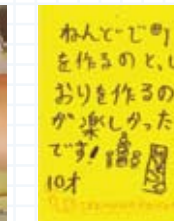 ねんどで
を作るのと、し
おりを作るの
が楽しかった
です!
10才